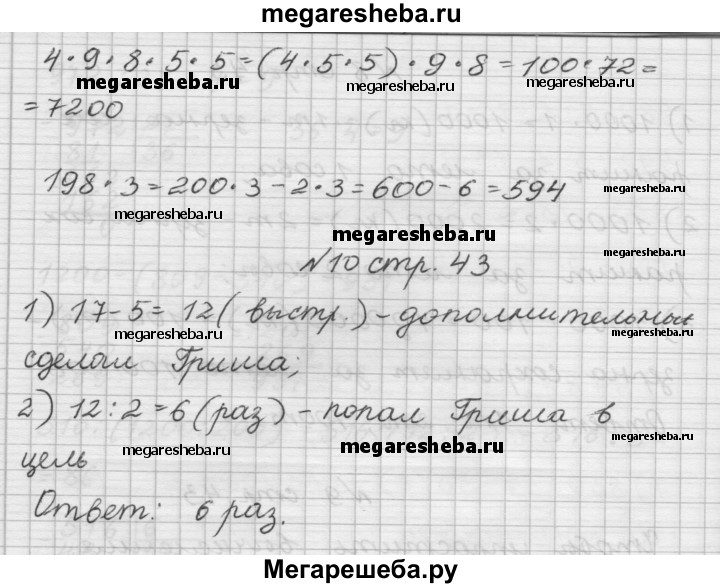 megaresheba.ru
4·9·8·5·5=(4·5·5)·9·8=100·72=
megaresheba.ru megaresheba.ru megaresheba.ru
=7200
198·3=200·3-2·3=600-6=594
megaresheba.ru megaresheba.ru
megaresheba.ru
№10 стр. 43 megaresheba.ru
1) 17-5=12(выстр.)-дополнительных
megaresheba.ru megaresheba.ru
сделал Гриша;
2) 12:2=6(раз)-попал Гриша в
megaresheba.ru megaresheba.ru megaresheba.ru
цель
Ответ: 6 раз.
Мегарешеба.ру